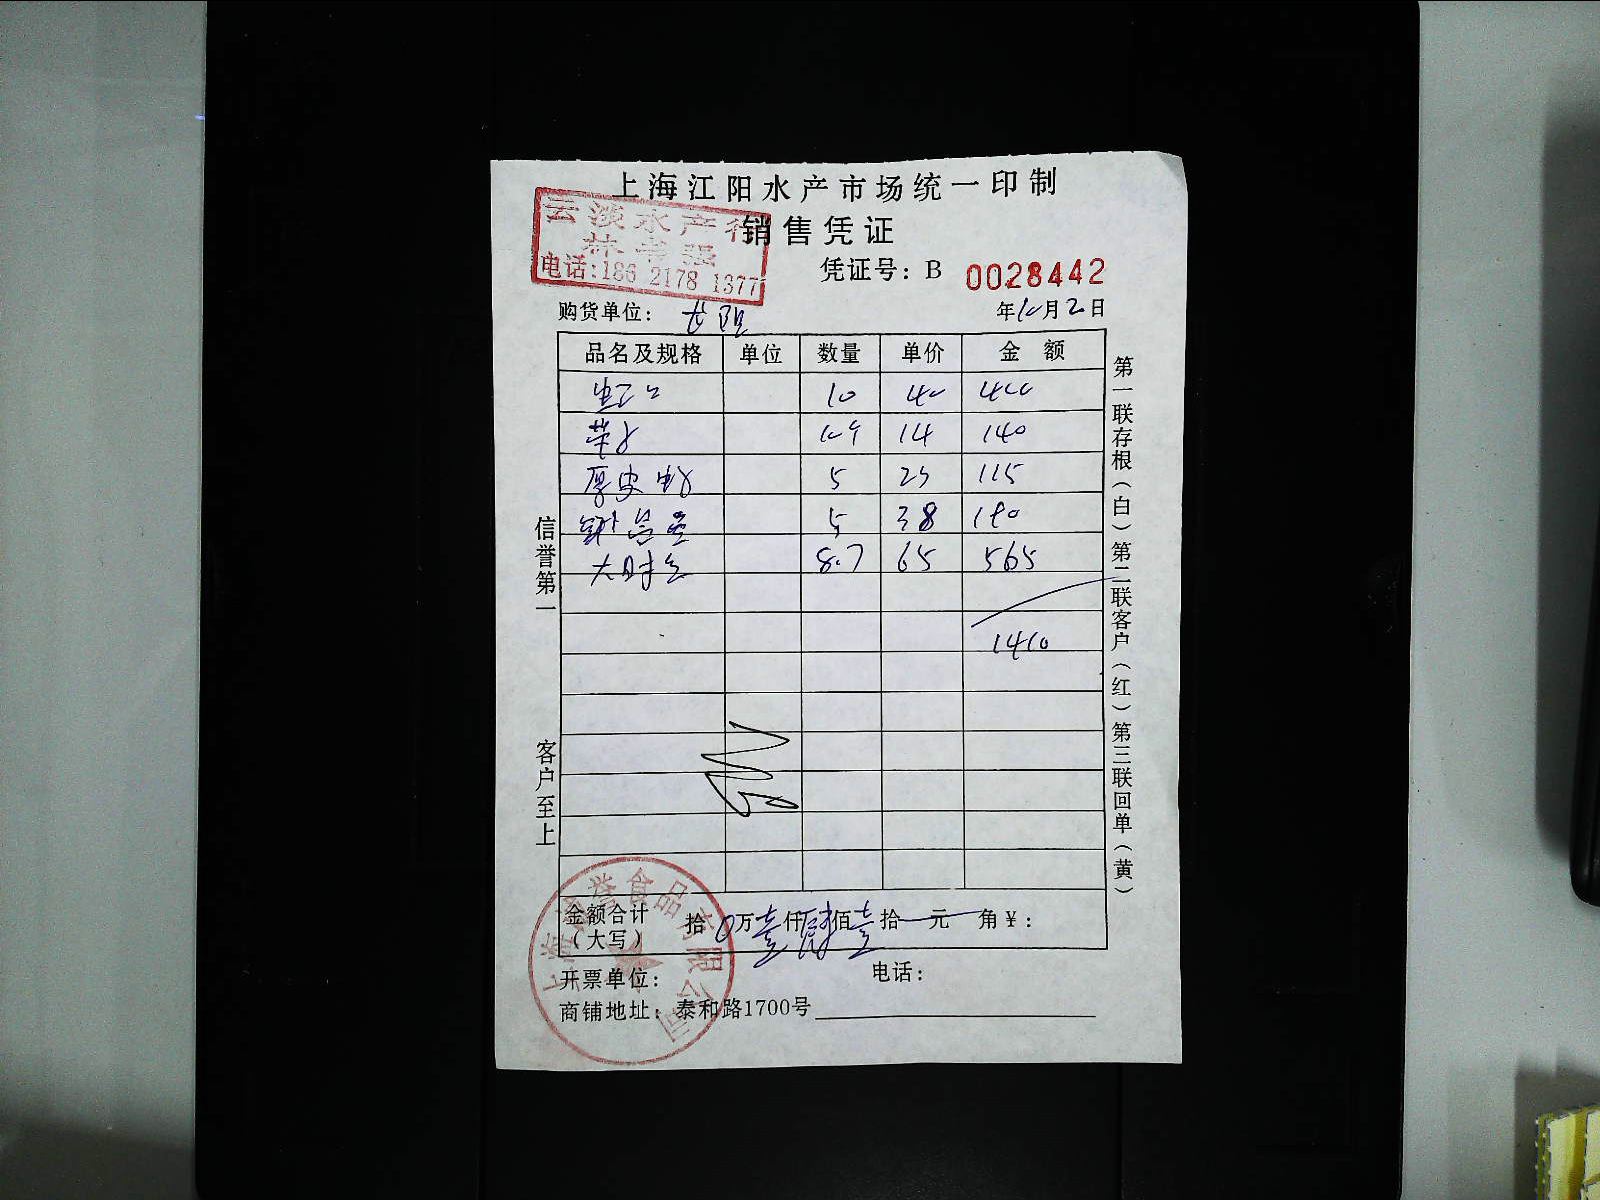 上海江阳水产市场统一印制
云淡水产行
销售凭证
电话:186 2178 1377
凭证号：B 0028442
购货单位：
年10月20日
品名及规格 单位 数量 单价 金额
10 40 400
14 140
厚皮 5 23 115
5 38 190
大 8.7 65 565
1410
信誉第一
客户至上
第一联存根（白）第二联客户（红）第三联回单（黄）
金额合计（大写） 拾0万壹仟肆佰壹拾元 角￥：
上海 誉食品有限公司
开票单位： 电话：
商铺地址：泰和路1700号